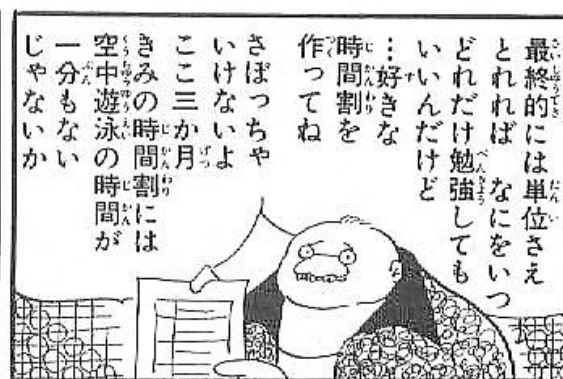 最終的には単位さえ
とれれば　なにをいつ
どれだけ勉強しても
いいんだけど
…好きな
時間割を
作ってね
さぼっちゃ
いけないよ
ここ三か月
きみの時間割には
空中遊泳の時間が
一分もない
じゃないか